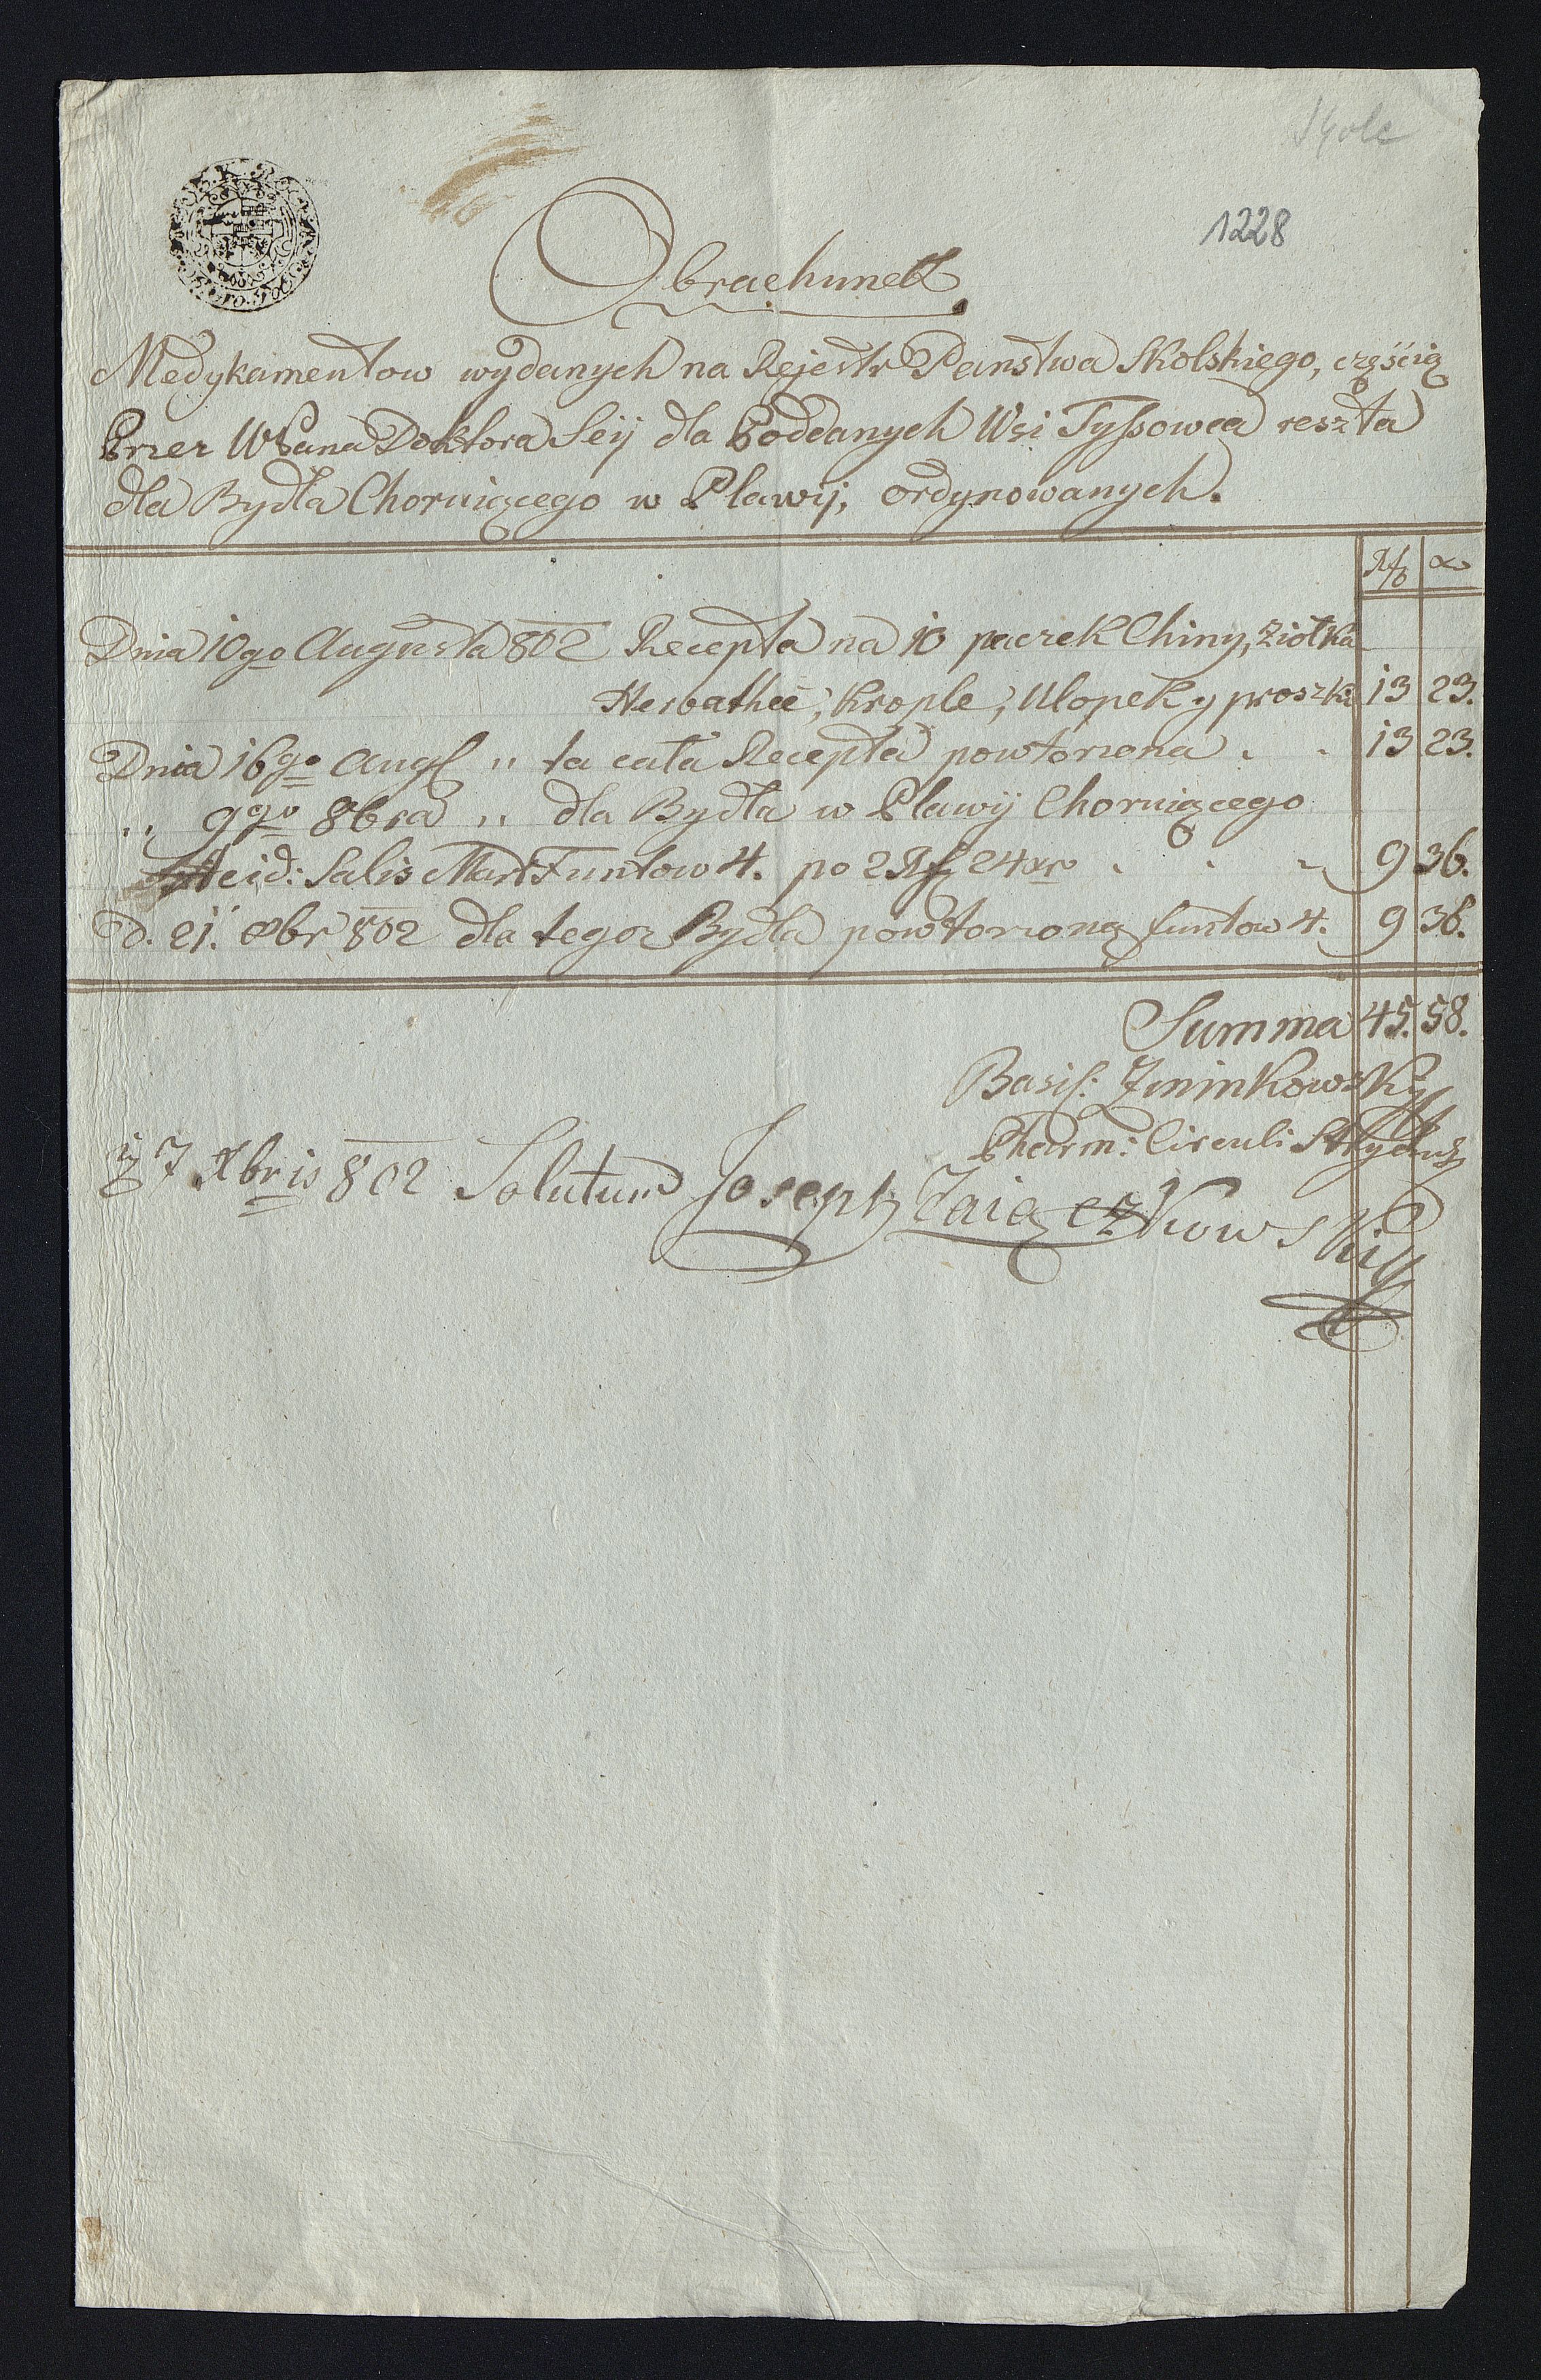 Skole
1228
Obrachunek
Medykamentow wydanych na Rejestr Panstwa Skolskiego, częścią
Przez WPana Doktora Seÿ dla Poddanych Wsi Tyssowca reszta
dla Bydła Choruiącego w Plawÿ, ordynowanych.
Rf xr
Dnia 10go Augusta 802 Recepta na 10 paczek Chiny, Ziołka
Herbathee, Krople, Ulopek y proszki 13 23.
Dnia 16go Aug " ta cała Recepta powtorzona . . 13 23.
" 9go 8bra " dla Bydła w Plawÿ Choruiącego
Acid: Salis Mari Funtow 4. po 2 Rf 24 xr . . 9 36.
D. 21. 8br 802 dla tegoz Bydła powtorzona funtow 4. 9 36.
Summa 45. 58.
Basil: Zminkowskÿ
Pharm: Circuli Stryens
7 Xbris 802 Solutum Joseph Zaiączkowskiÿ